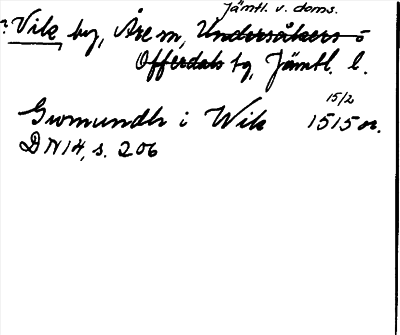 Jämtl. v. doms.
? Vik by, Åre sn, Undersåkers o
Offerdals tg, Jämtl. l.
15/2
Gwmundh i Wik 1515 or.
DN 14, s. 206